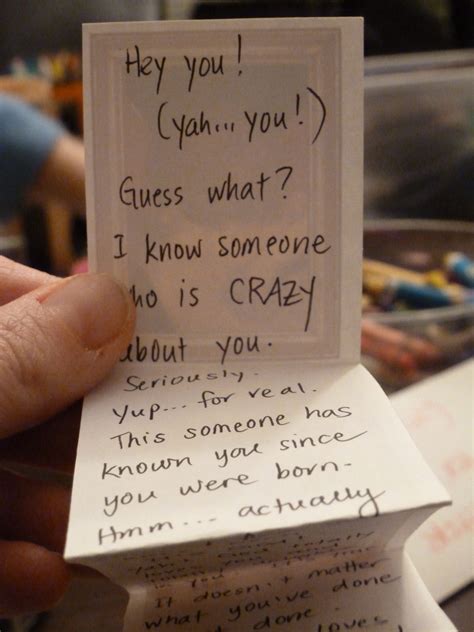 Hey you!
(yah... you!)
Guess what?
I know someone
who is CRAZY
about you.
Seriously.
Yup... for real.
This someone has
known you since
you were born.
Hmm... actually
It doesn't matter
what you've done
done.
loves